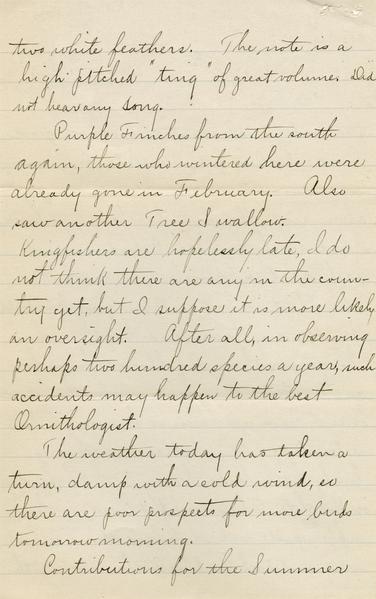 two white feathers. The note is a
high pitched "ting" of great volume. Did
not hear any song.
Purple Finches from the south
again, those who wintered here were
already gone in February. Also
saw another Tree Swallow.
Kingfishers are hopelessly late, I do
not think there are any in the coun-
try yet, but I suppose it is more likely
an oversight. After all, in observing
perhaps two hundred species a year, such
accidents may happen to the best
Ornithologist.
The weather today has taken a
turn, damp with a cold wind, so
there are poor prospects for more birds
tomorrow morning.
Contributions for the Summer